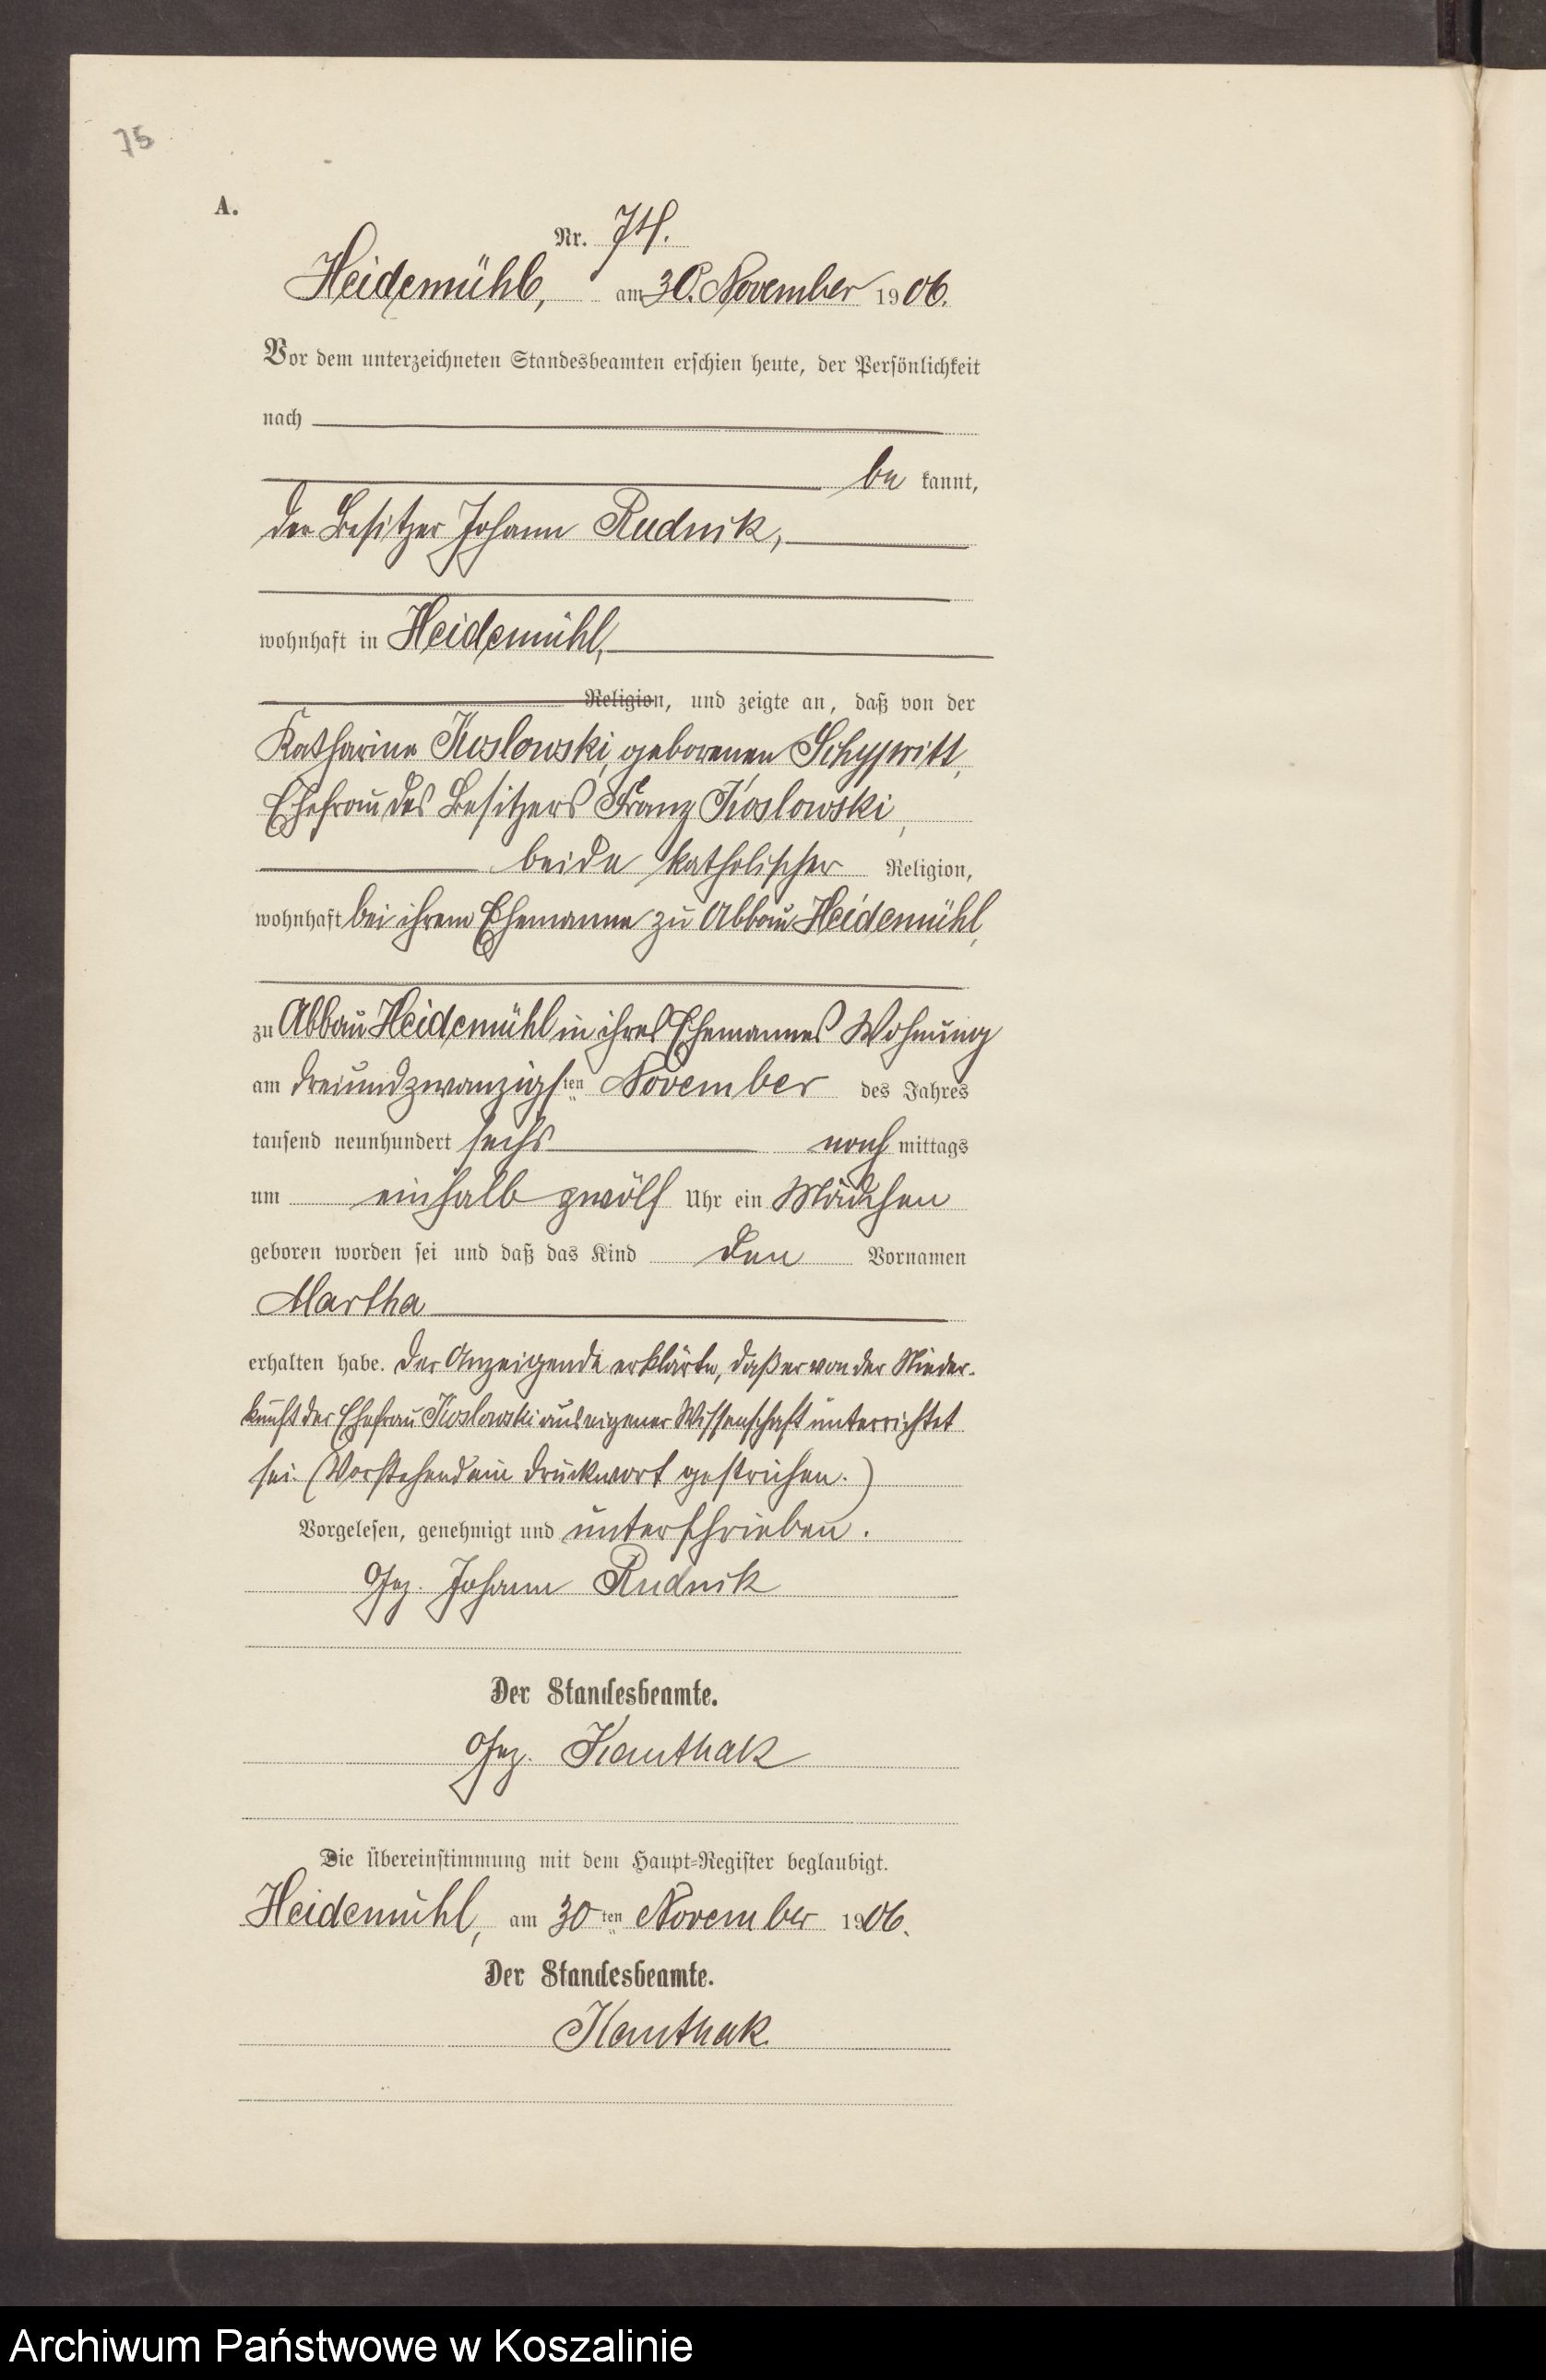 75
A.
Nr. 74.
Heidemühl, am 30. November 1906.
Vor dem unterzeichneten Standesbeamten erschien heute, der Persönlichkeit
nach
be kannt,
der Besitzer Johann Rudnik,
wohnhaft in Heidemühl,
Religion, und zeigte an, daß von der
Katharina Koslowski, geborenen
Ehefrau des Besitzers Franz Koslowski,
beide katholischer Religion,
wohnhaft bei ihrem Ehemanne zu Abbau Heidemühl,
zu Abbau Heidemühl in ihres Ehemannes Wohnung
am dreiundzwanzigsten November des Jahres
tausend neunhundert sechs nach mittags
um einhalb zwölf Uhr ein Mädchen
geboren worden sei und daß das Kind den Vornamen
Martha
erhalten habe. Der Anzeigende erklärte, daß er von der Nieder-
kunft der Ehefrau Koslowski aus eigener Wissenschaft unterrichtet
sei. (Vorstehend ein Druckwort gestrichen.)
Vorgelesen, genehmigt und unterschrieben.
Gez. Johann Rudnik
Der Standesbeamte.
Gez. Kanthak
Die Übereinstimmung mit dem Haupt-Register beglaubigt.
Heidemühl, am 30ten November 1906.
Der Standesbeamte.
Kanthak
Archiwum Państwowe w Koszalinie